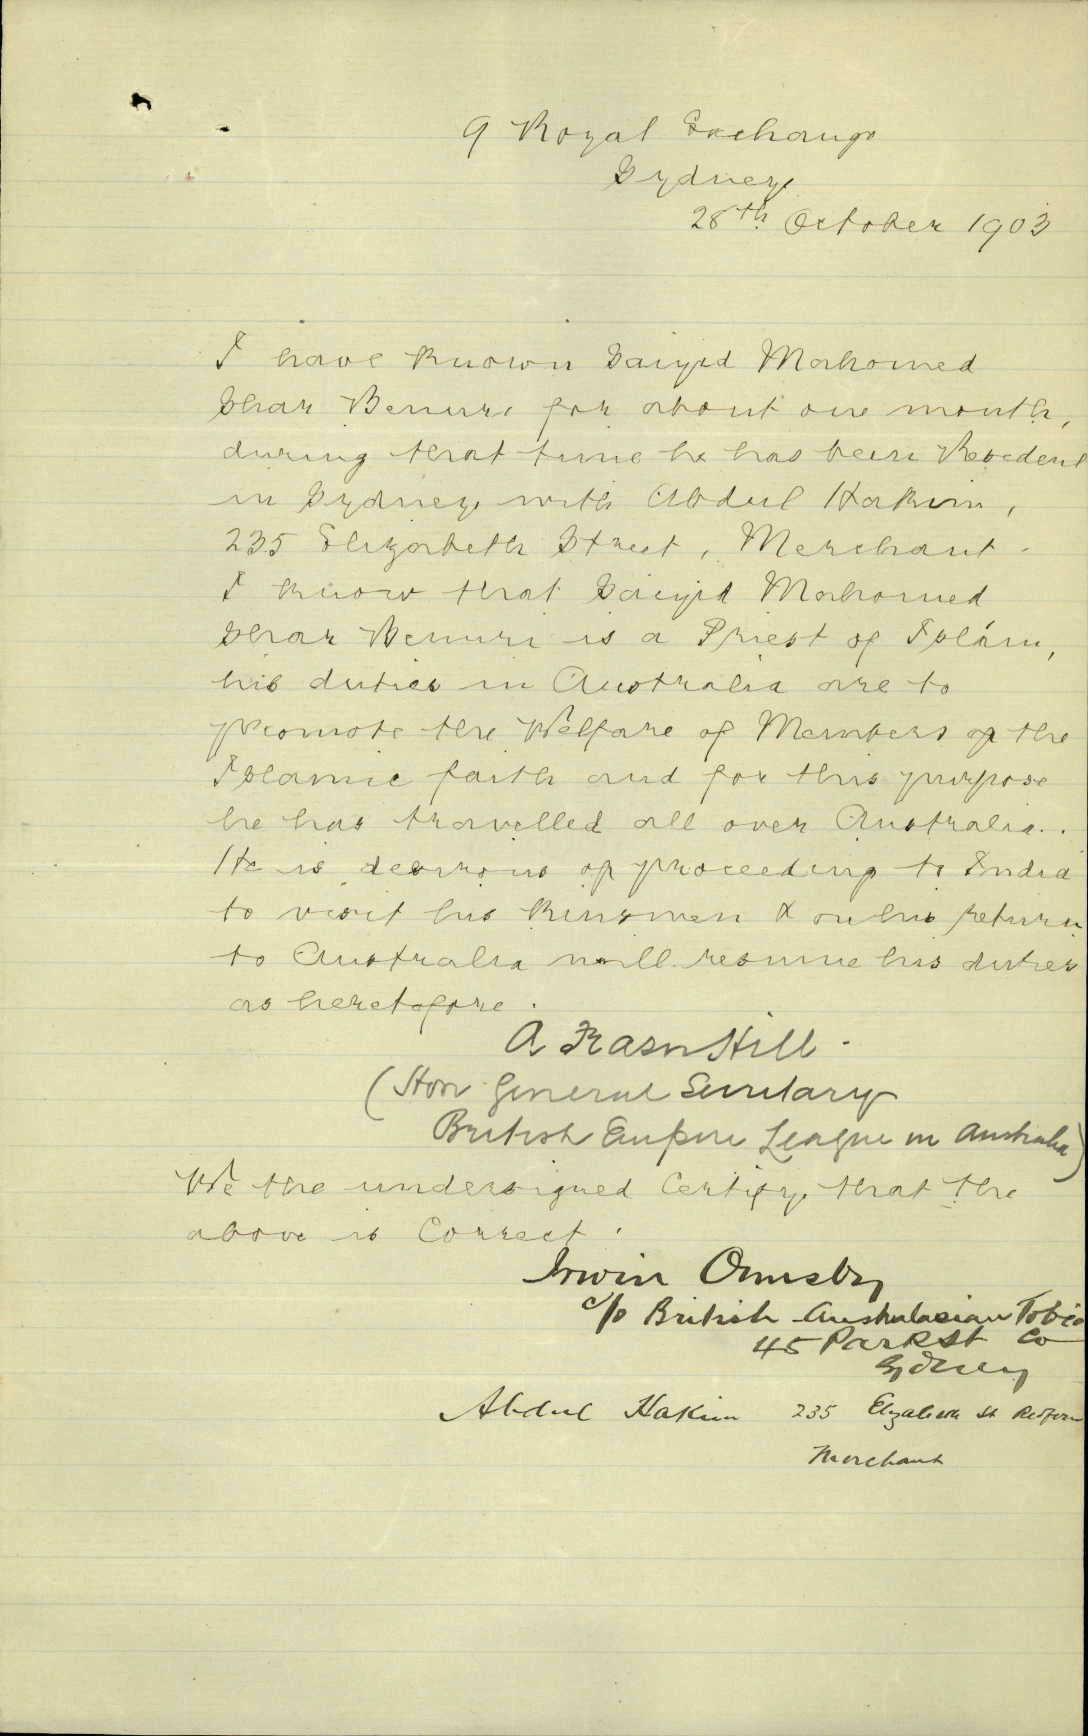 9 Royal Exchange
Sydney
28th October 1903
I have known Saiyid Mahomed
Shar Benuri for about one month,
during that time he has been Resident
in Sydney with Abdul Hakim,
235 Elizabeth Street, Merchant.
I know that Saiyid Mahomed
Shar Benuri is a Priest of Islám,
his duties in Australia are to
promote the Welfare of Members of the
Islamic faith and for this purpose
he has travelled all over Australia.
He is desirous of proceeding to India
to visit his Kinsmen & on his return
to Australia will resume his duties
as heretofore.
A Hill.
(Hon General Secretary
British Empire League in Australia)
We the undersigned Certify that the
above is Correct.
Irwin Ormsby
c/o British Australasian Tobco
45 Park St Co
Sydney
Abdul Hakim 235 Elizabeth St Redfern
Merchant